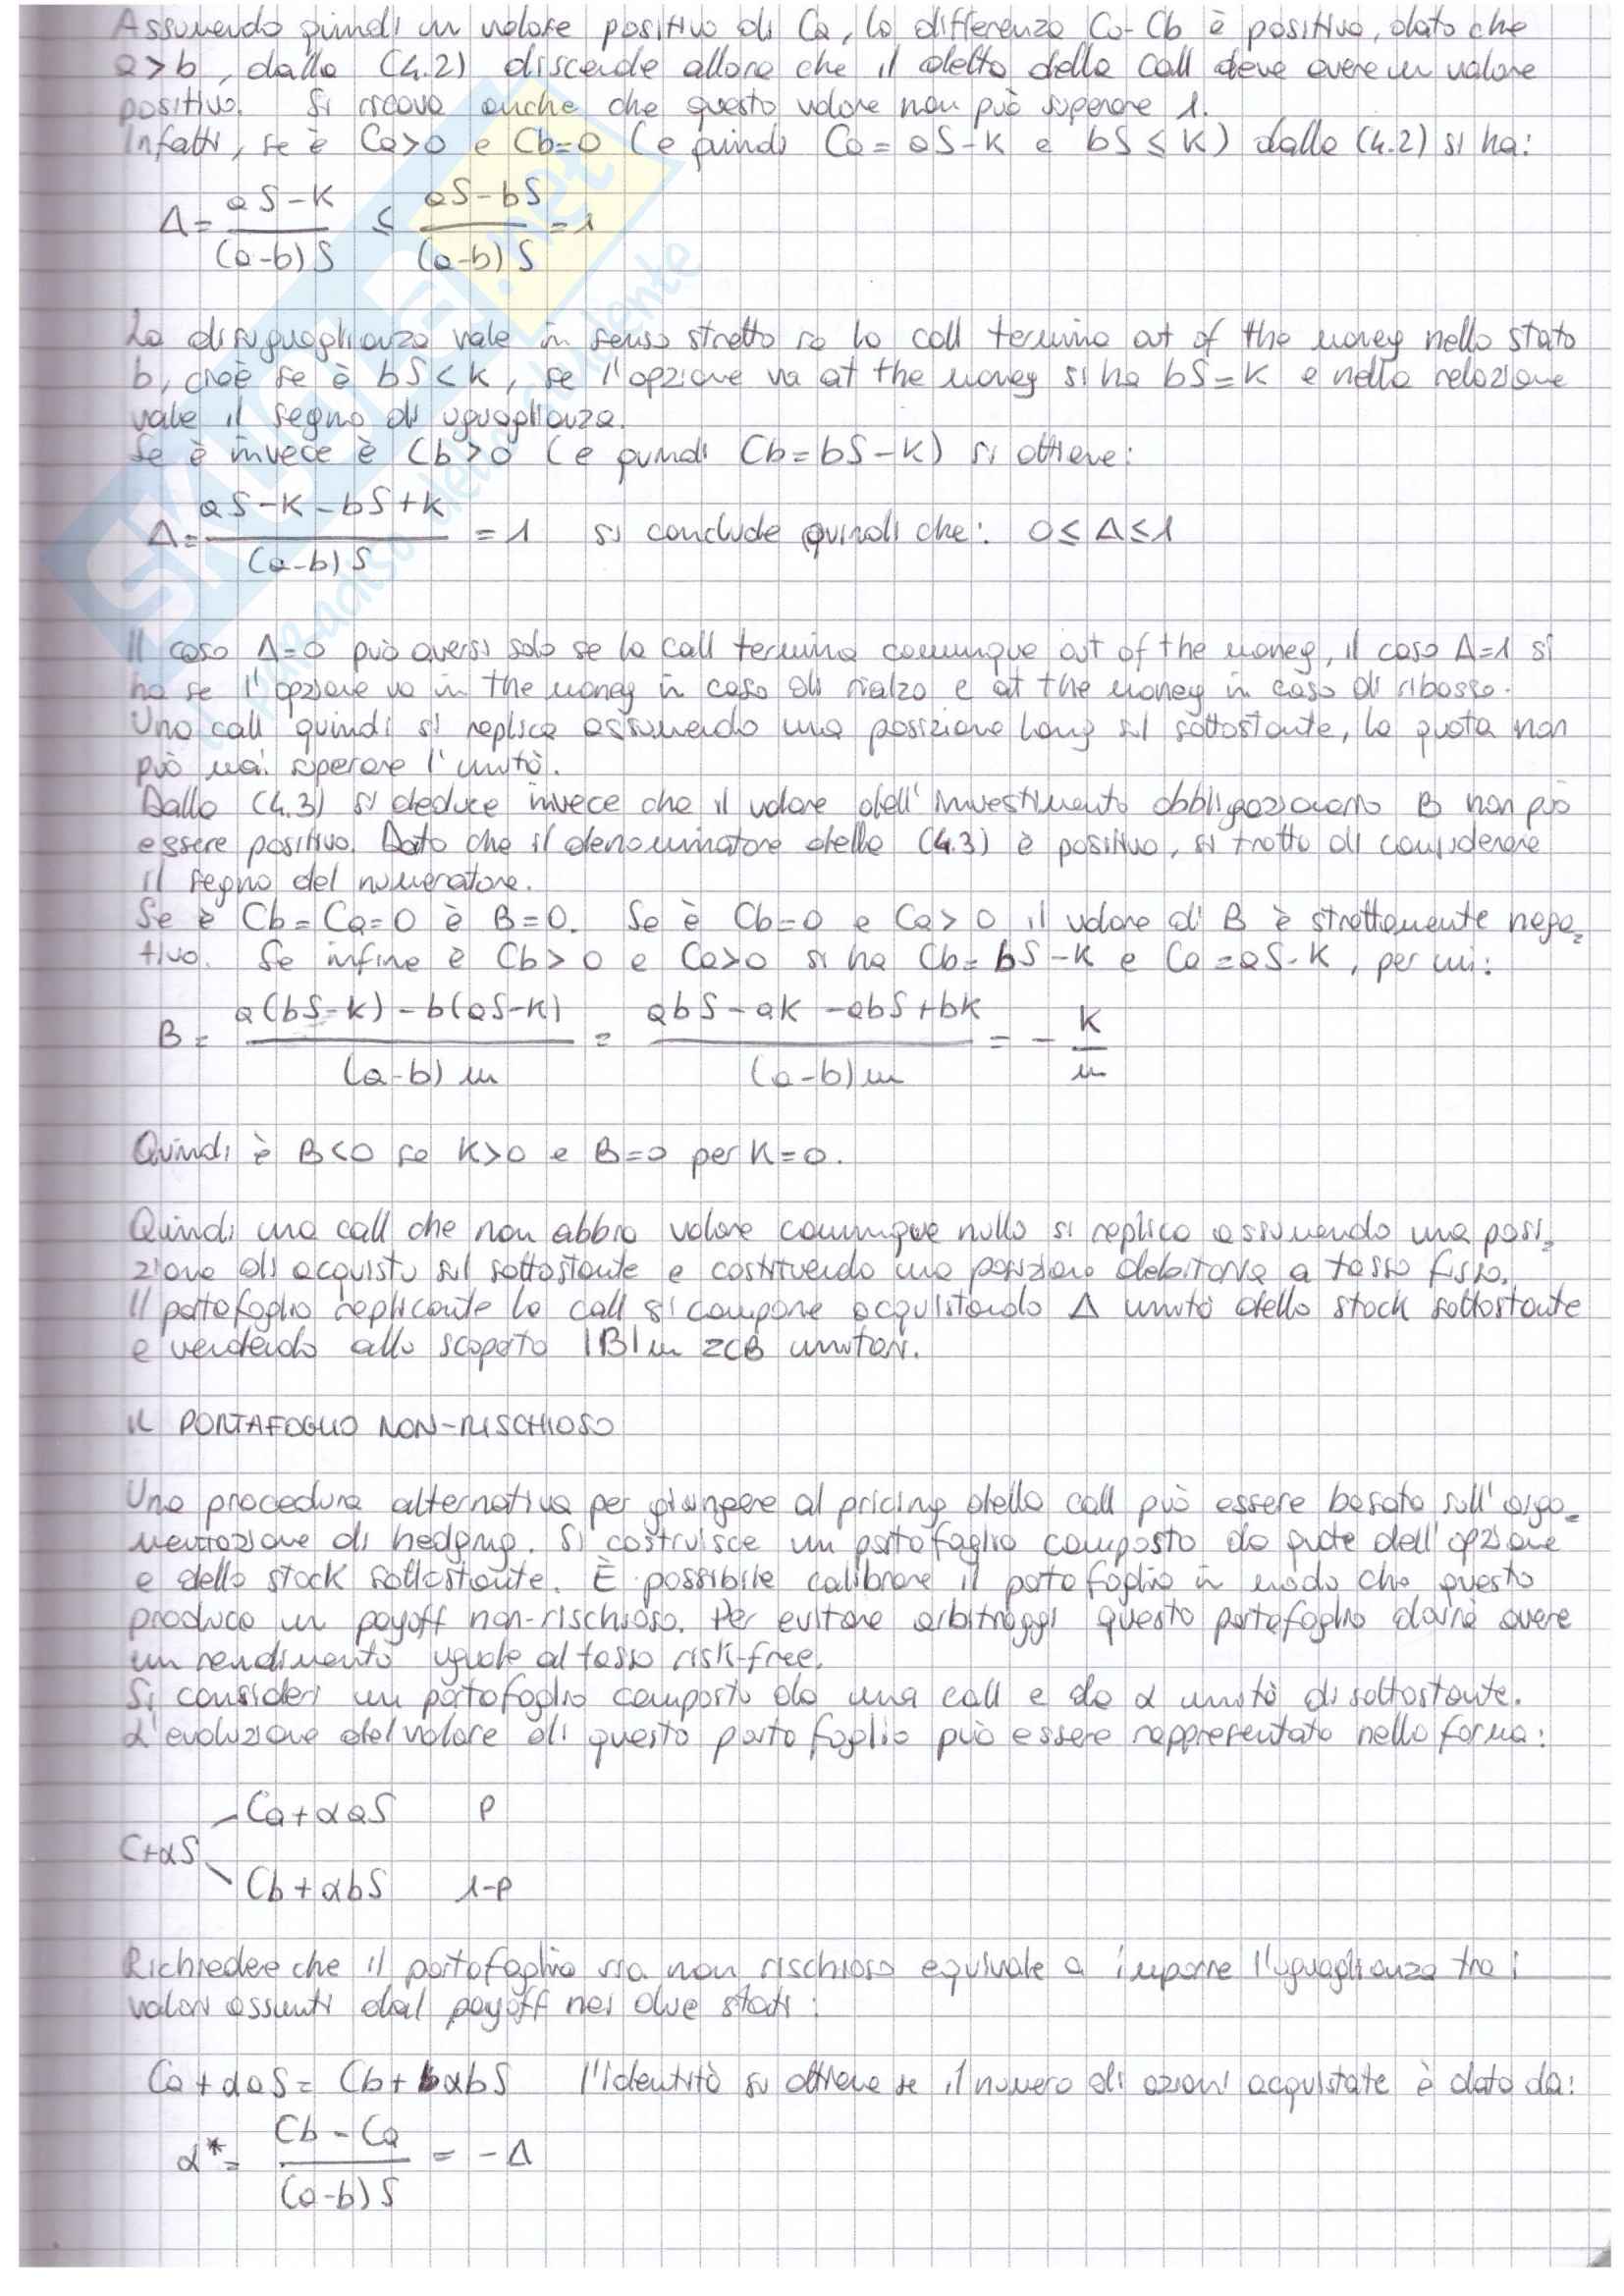 Assumendo quindi un valore positivo di Ca, la differenza Ca-Cb è positiva, dato che
a>b, dalla (4.2) discende allora che il delta della call deve avere un valore
positivo. Si ricava anche che questo valore non può superare 1.
Infatti, se è Ca>0 e Cb=0 (e quindi Ca=aS-K e bS≤K) dalla (4.2) si ha:
Δ= aS-K / (a-b)S ≤ aS-bS / (a-b)S =1
La disuguaglianza vale in senso stretto se la call termina out of the money nello stato
b, cioè se è bS<K, se l'opzione va at the money si ha bS=K e nella relazione
vale il segno di uguaglianza.
Se è invece è Cb>0 (e quindi Cb=bS-K) si ottiene:
Δ= aS-K-bS+K / (a-b)S =1 si conclude quindi che: 0≤Δ≤1
Il caso Δ=0 può aversi solo se la call termina comunque out of the money, il caso Δ=1 si
ha se l'opzione va in the money in caso di rialzo e at the money in caso di ribasso.
Una call quindi si replica assumendo una posizione long sul sottostante, la quota non
può mai superare l'unità.
Dalla (4.3) si deduce invece che il valore dell'investimento obbligazionario B non può
essere positivo. Dato che il denominatore della (4.3) è positivo, si tratta di considerare
il segno del numeratore.
Se è Cb=Ca=0 è B=0. Se è Cb=0 e Ca>0 il valore di B è strettamente nega=
tivo. Se infine è Cb>0 e Ca>0 si ha Cb=bS-K e Ca=aS-K, per cui:
B= a(bS-K)-b(aS-K) / (a-b)m = abS-aK-abS+bK / (a-b)m = - K / m
Quindi è B<0 se K>0 e B=0 per K=0.
Quindi una call che non abbia valore comunque nullo si replica assumendo una posi=
zione di acquisto sul sottostante e costituendo una posizione debitoria a tasso fisso.
Il portafoglio replicante la call si compone acquistando Δ unità dello stock sottostante
e vendendo allo scoperto |B|m ZCB unitari.
IL PORTAFOGLIO NON-RISCHIOSO
Una procedura alternativa per giungere al pricing della call può essere basata sull'argo=
mentazione di hedging. Si costruisce un portafoglio composto da quote dell'opzione
e dello stock sottostante. È possibile calibrare il portafoglio in modo che questo
produca un payoff non-rischioso. Per evitare arbitraggi questo portafoglio dovrà avere
un rendimento uguale al tasso risk-free.
Si consideri un portafoglio composto da una call e da α unità di sottostante.
L'evoluzione del valore di questo portafoglio può essere rappresentata nella forma:
Ca+αaS p
C+αS
Cb+αbS 1-p
Richiedere che il portafoglio sia non rischioso equivale a imporre l'uguaglianza tra i
valori assunti dal payoff nei due stati:
Ca+αaS= Cb+αbS l'identità si ottiene se il numero di azioni acquistate è dato da:
α*= Cb-Ca / (a-b)S = -Δ